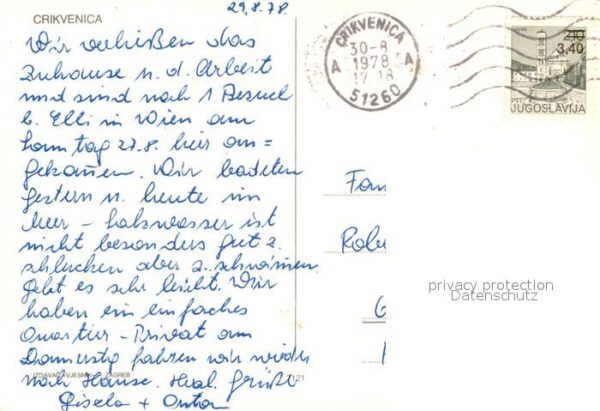 29.8.78
CRIKVENICA
Wir verließen das
Zuhause u. d. Arbeit
und sind nach 1 Besuch
b. Elli in Wien am
Sonntag 27.8. hier an=
gekommen. Wir badeten
gestern u. heute im
Meer - Salzwasser ist
nicht besonders gut z.
schlucken aber z. schwimmen
geht es sehr leicht. Wir
haben ein einfaches
Quartier - Privat am
Donnerstg fahren wir wieder
nach Hause. Herzl. Grüße
Gisela + Anton
CRIKVENICA
30-8
A 1978 A
17-18
51260
2,10
3,40
PTT
JUGOSLAVIJA
Fam
Robe
privacy protection
Datenschutz
IZDAVAČ »VJESNIK« - ZAGREB
121